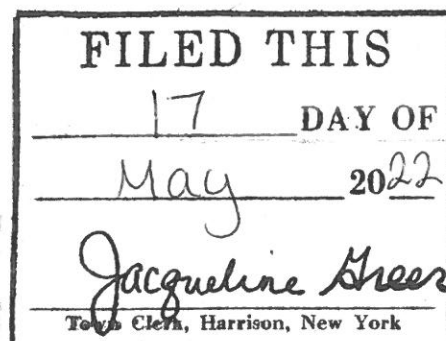 FILED THIS
17 DAY OF
May 2022
Jacqueline Greer
Town Clerk, Harrison, New York